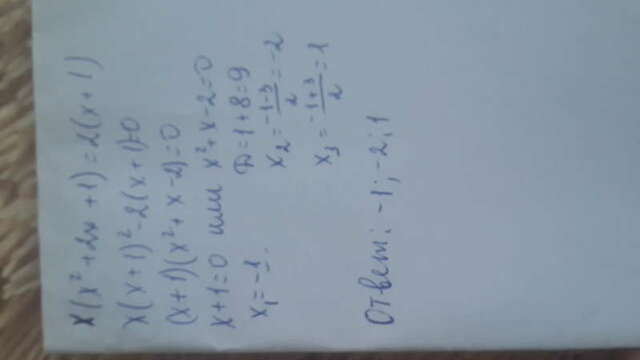 x(x²+2x+1)=2(x+1)
x(x+1)²-2(x+1)=0
(x+1)(x²+x-2)=0
x+1=0 или x²+x-2=0
x₁=-1. Д=1+8=9
x₂=\frac{-1-3}{2}=-2
x₃=\frac{-1+3}{2}=1
Ответ: -1; -2; 1